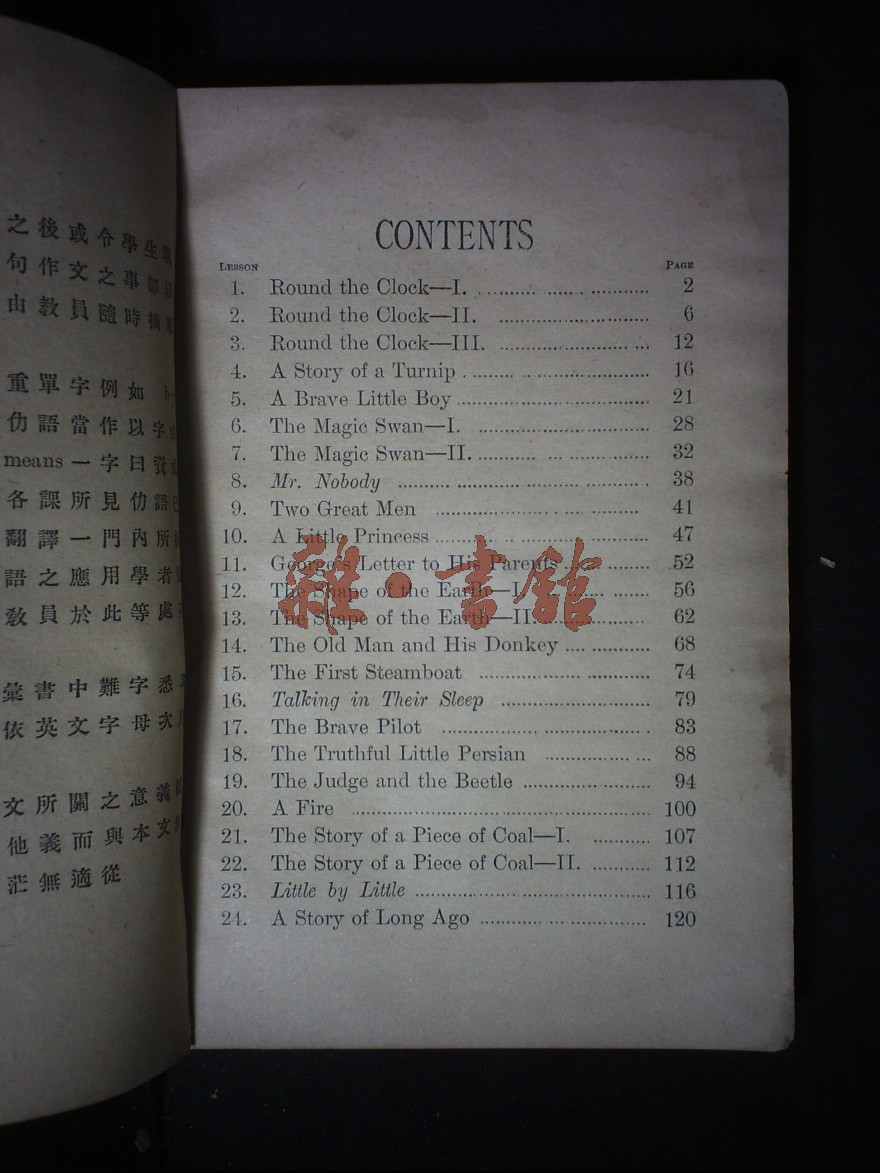 之後或令學生
句作文之事即以
由教員隨時摘
重單字例如
仂語當作以字
means一字曰資
各課所見仂語已
翻譯一門內所
語之應用學者
教員於此等處
彙書中難字悉
依英文字母次
文所關之意義
他義而與本文
茫無適從
CONTENTS
LESSON PAGE
1. Round the Clock—I. 2
2. Round the Clock—II. 6
3. Round the Clock—III. 12
4. A Story of a Turnip 16
5. A Brave Little Boy 21
6. The Magic Swan—I. 28
7. The Magic Swan—II. 32
8. Mr. Nobody 38
9. Two Great Men 41
10. A Little Princess 47
11. George's Letter to His Parents 52
12. The Shape of the Earth—I. 56
13. The Shape of the Earth—II. 62
14. The Old Man and His Donkey 68
15. The First Steamboat 74
16. Talking in Their Sleep 79
17. The Brave Pilot 83
18. The Truthful Little Persian 88
19. The Judge and the Beetle 94
20. A Fire 100
21. The Story of a Piece of Coal—I. 107
22. The Story of a Piece of Coal—II. 112
23. Little by Little 116
24. A Story of Long Ago 120
雜·書館